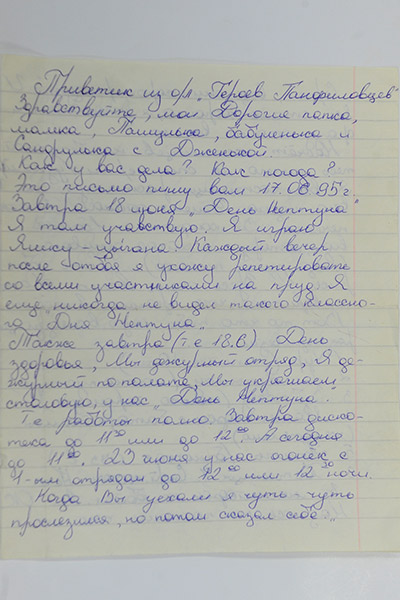 Приветик из о/л „Героев Панфиловцев"
Здравствуйте, мои Дорогие папка,
мамка, Пашулька, бабуленька и
Сандрулька с Дженькой.
Как у вас дела? Как погода?
Это письмо пишу вам 17.06 95 г.
Завтра 18 июня „День Нептуна"
Я там учавствую. Я играю
Яшку-цыгана. Каждый вечер
после отбоя я ухожу репетировать
со всеми участниками на пруд. Я
еще никогда не видел такого классно-
го „Дня Нептуна".
Также завтра (т е 18.В) День
здоровья, Мы дежурный отряд, Я де-
журный по палате, Мы украшаем
столовую, у нас „День Нептуна".
Т е работы полно. Завтра диско-
тека до 11³⁰ или до 12⁰⁰. А сегодня
до 11⁰⁰. 23 июня у нас огонек с
1-ым отрядом до 12⁰⁰ или 12³⁰ ночи.
Когда Вы уехали я чуть-чуть
прослезился, но потом сказал себе „